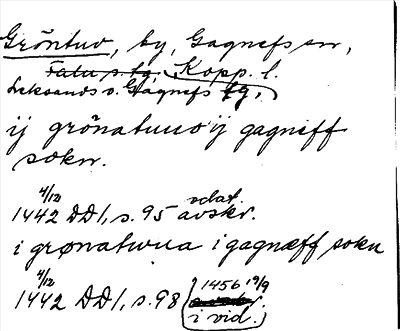 Gröntuv, by, Gagnefs sn,
Falu s. fg, Kopp. l.
Leksands o. Gagnefs tg.
ij grönatuuo ij gagneff
sokn.
4/12
1442 DD1, s. 95 odat. avskr.
i grønatwua i gagnæff sokn
4/12
1442 DD1, s. 98 1456 19/9
i vid.